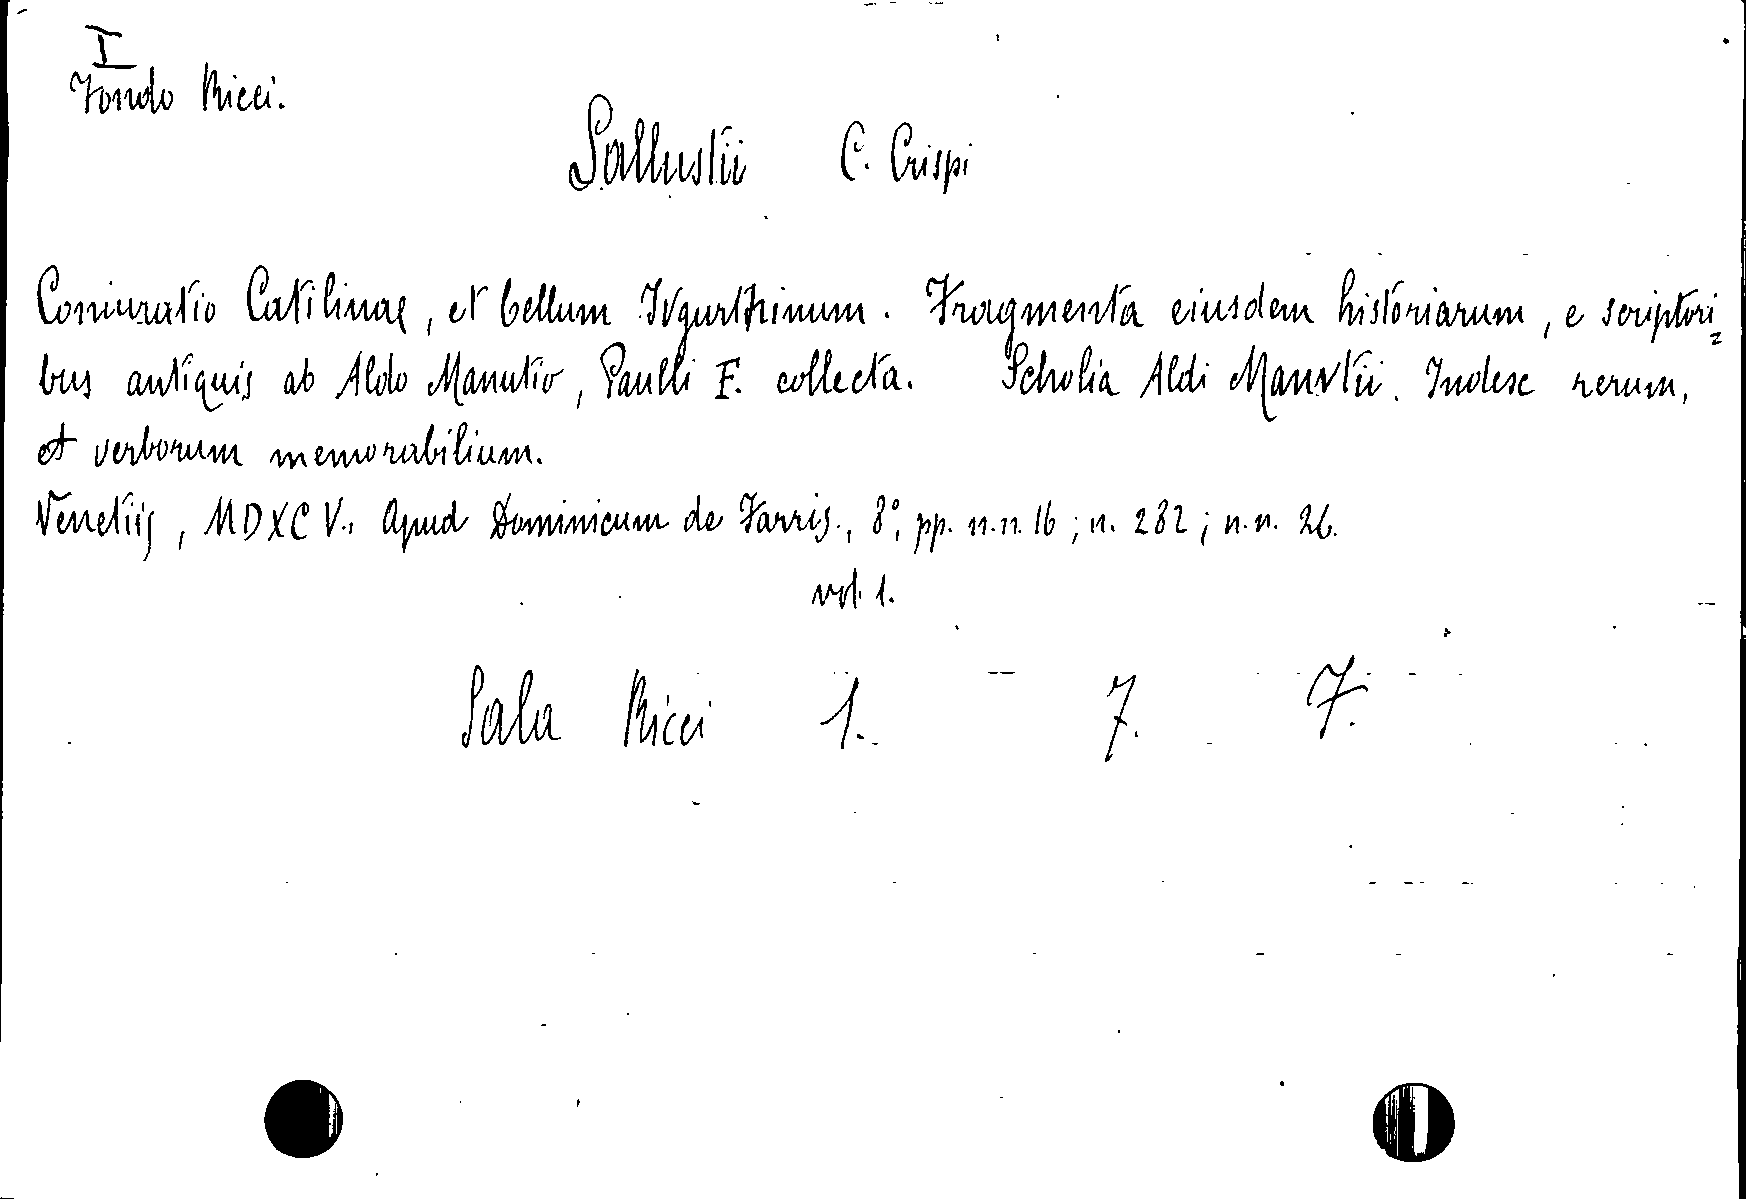 I
Fondo Ricci.
Sallustii C. Crispi
Coniuratio Catilinae, et bellum Ivgurthinum. Fragmenta eiusdem historiarum, e scriptori=
bus antiquis ab Aldo Manutio, Paulli F. collecta. Scholia Aldi Manvtii. Index rerum,
et verborum memorabilium.
Venetiis, MDXCV., Apud Dominicum de Farris., 8°, pp. n.n. 16 ; n. 282 ; n.n. 26.
vol. 1.
Sala Ricci 1. 7. 7.